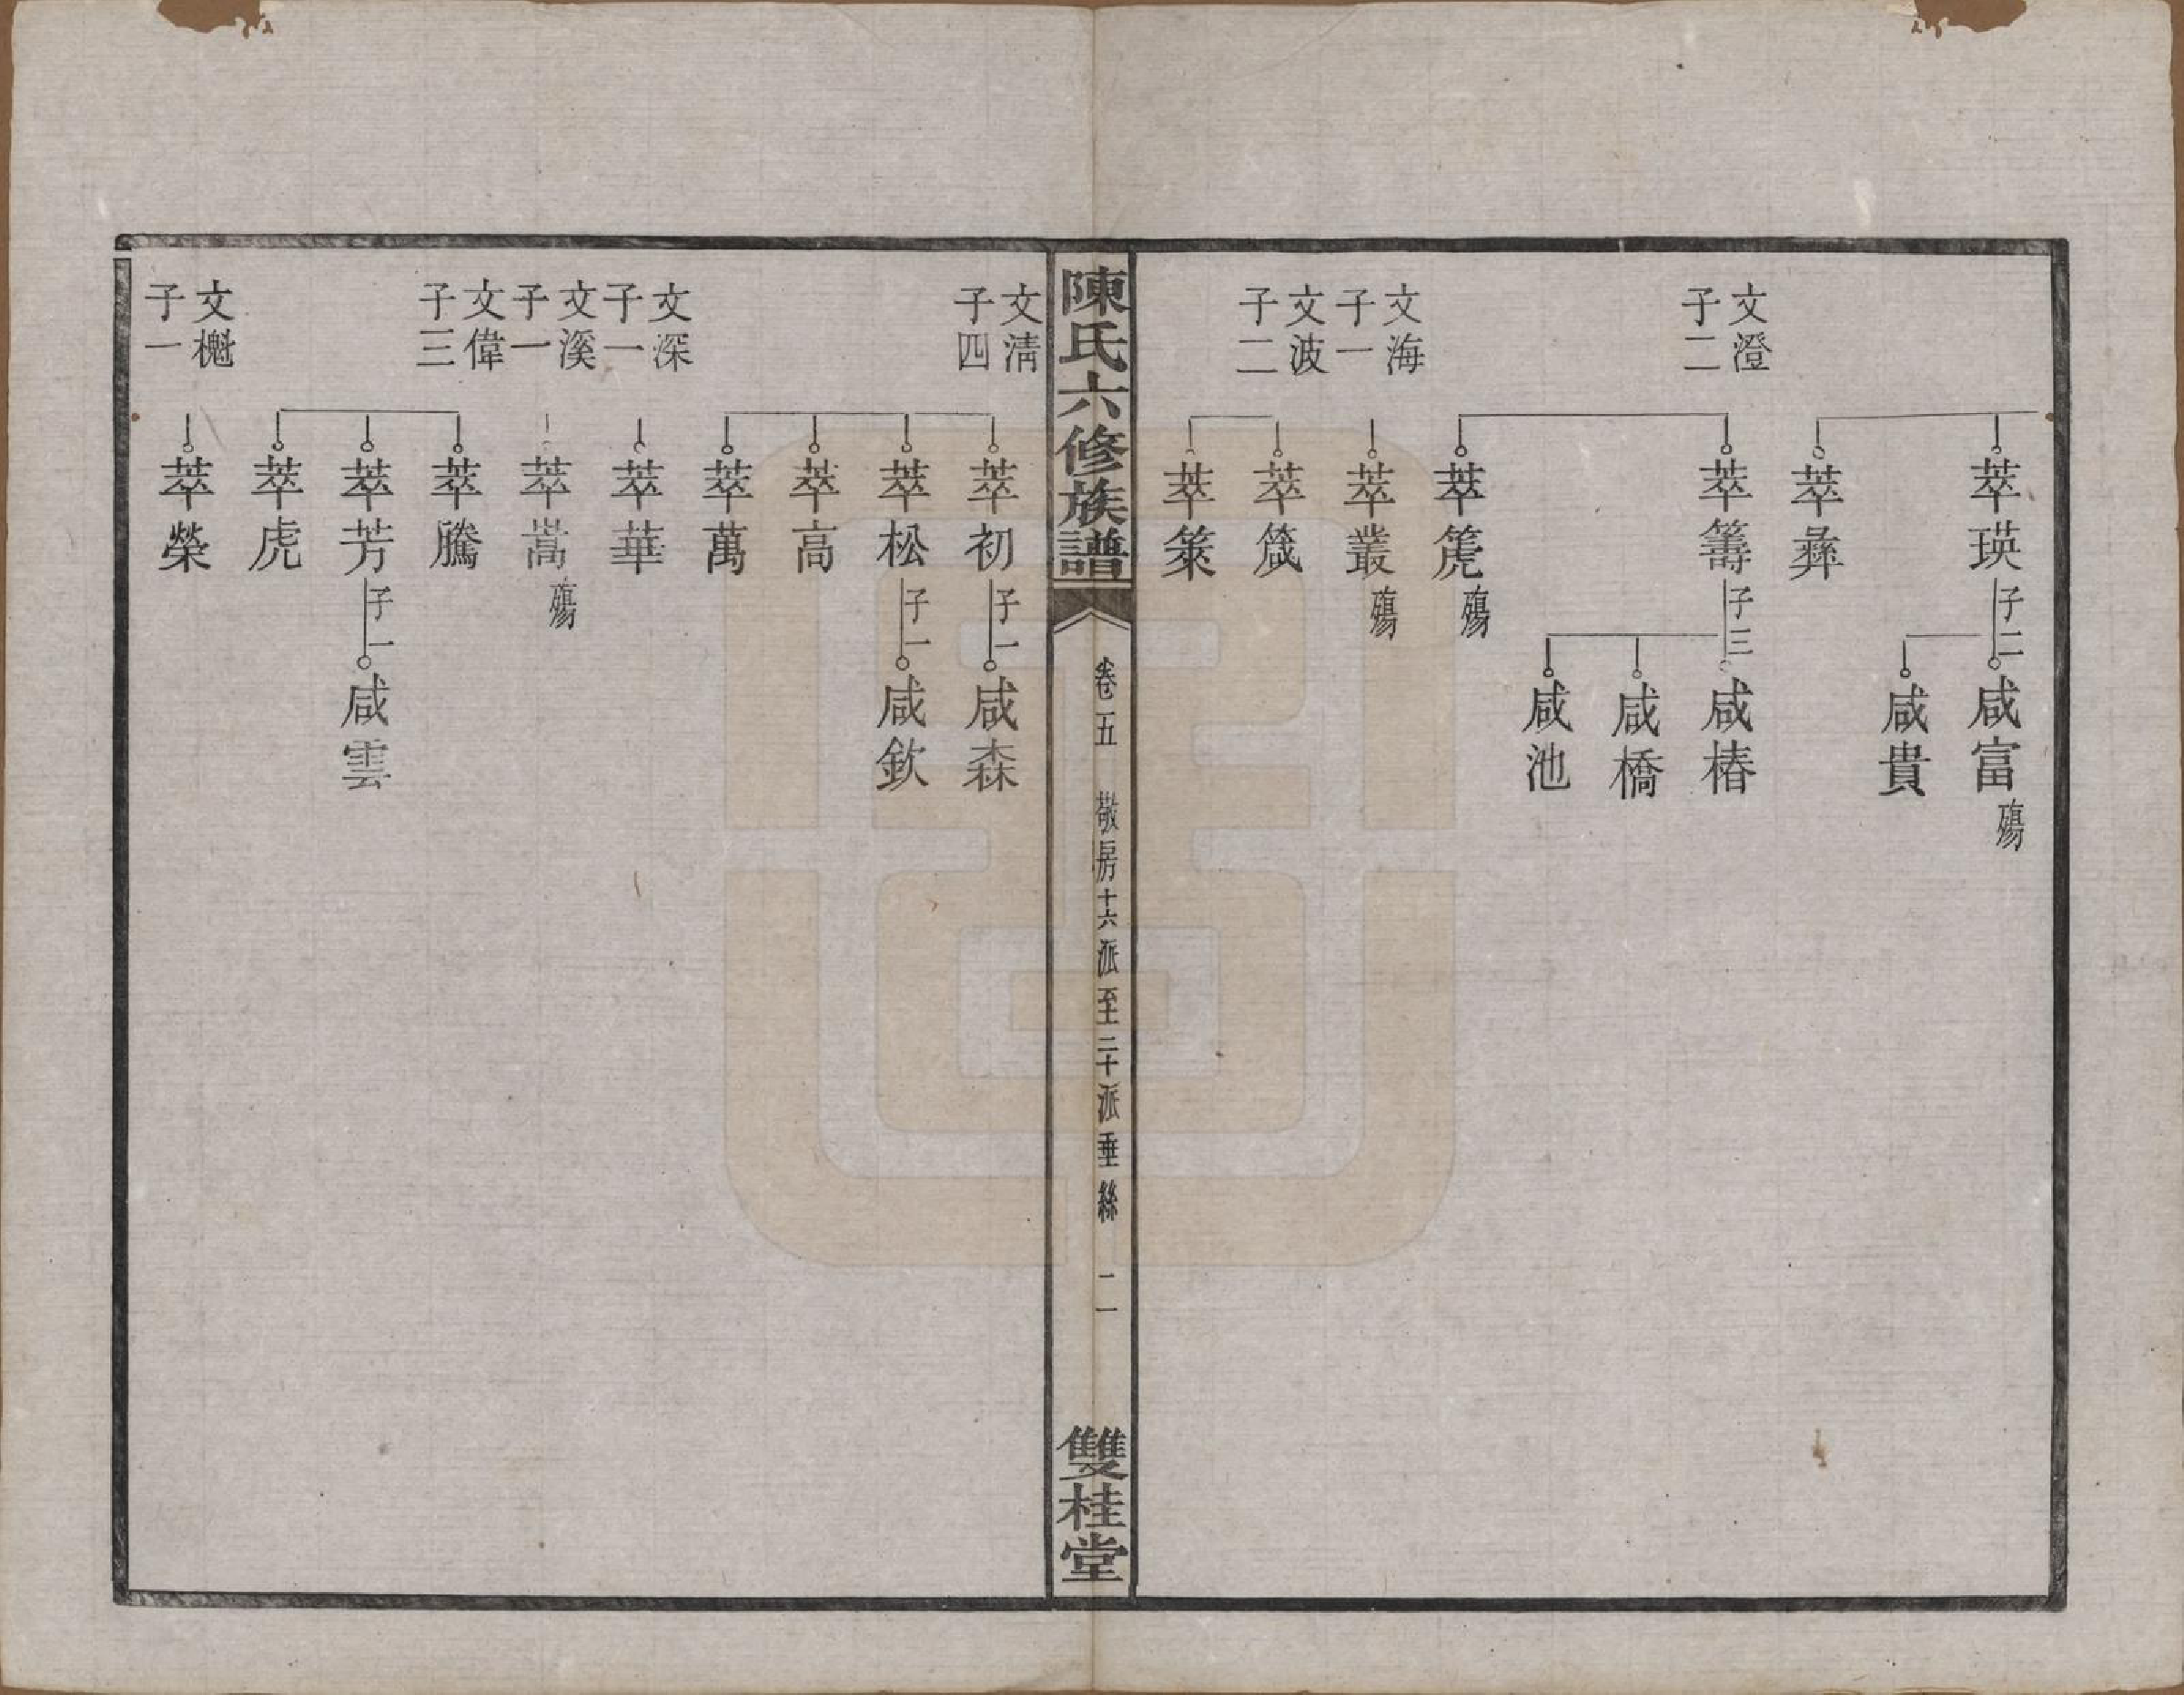 萃瑛
子二
咸富
殤
咸貴
萃彝
文澄
子二
萃籌
子三
咸椿
咸橋
咸池
萃箎
殤
文海
子一
萃叢
殤
文波
子二
萃箴
萃策
陳氏六修族譜
卷五
敬房十六派至二十派垂絲
二一
雙桂堂
文清
子四
萃初
子一
咸森
萃松
子一
咸欽
萃高
萃萬
文深
子一
萃華
文溪
子一
萃嵩
殤
文偉
子三
萃騰
萃芳
子一
咸雲
萃虎
文櫆
子一
萃榮